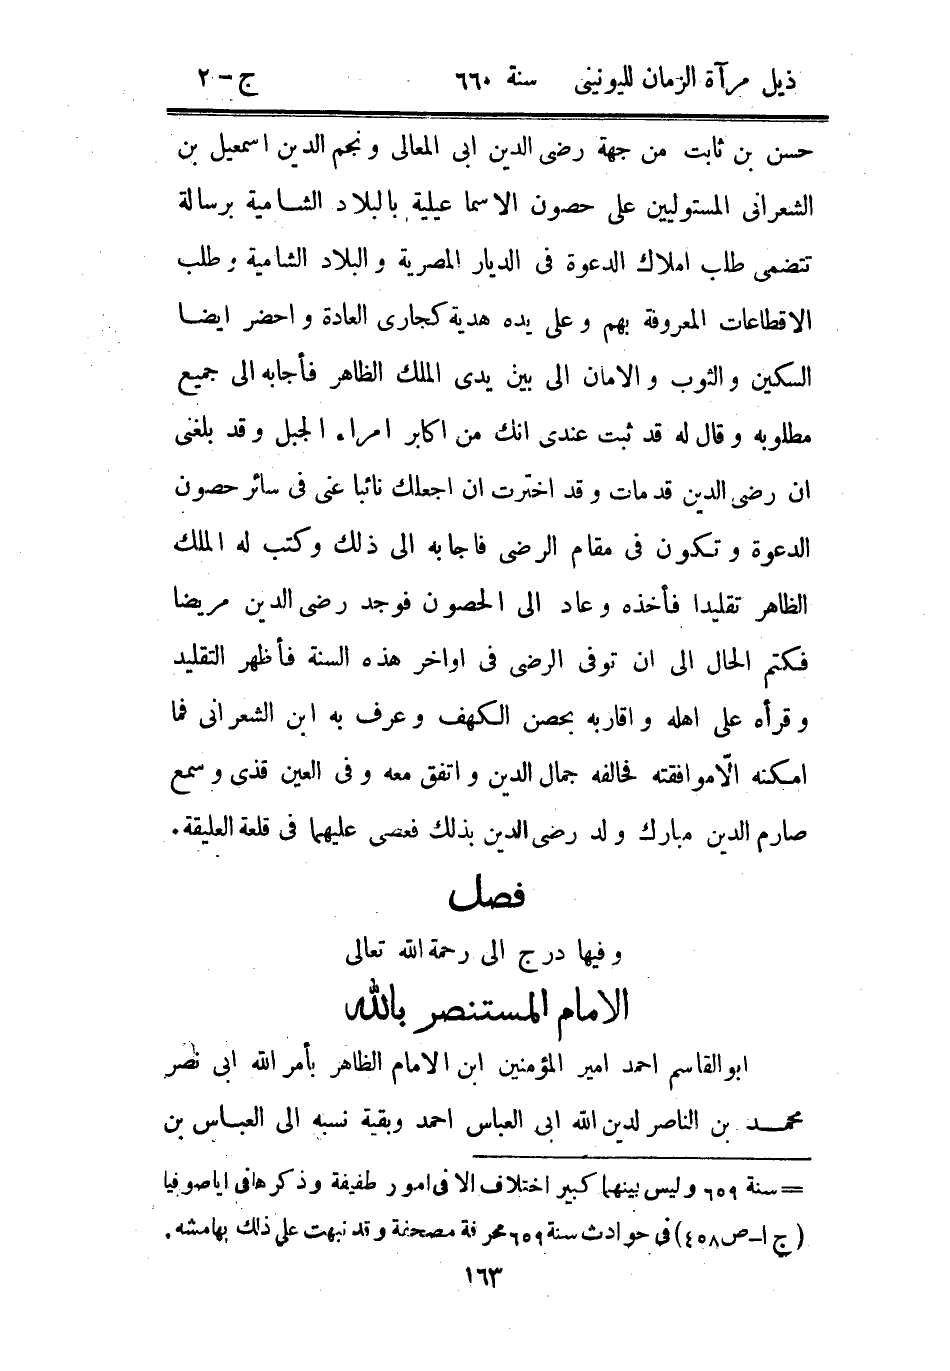 ذيل مرآة الزمان لليونينى سنة ٦٦٠ ج – ٢
حسن بن ثابت من جهة رضى الدين ابى المعالى ونجم الدين اسمعيل بن
الشعرانى المستوليين على حصون الاسماعيلية بالبلاد الشامية برسالة
تتضمى طلب املاك الدعوة فى الديار المصرية والبلاد الشامية وطلب
الاقطاعات المعروفة بهم وعلى يده هدية كجارى العادة واحضر ايضا
السكين والثوب والامان الى بين يدى الملك الظاهر فأجابه الى جميع
مطلوبه وقال له قد ثبت عندى انك من اكابر امراء الجبل وقد بلغنى
ان رضى الدين قد مات وقد اخترت ان اجعلك نائبا عنى فى سائر حصون
الدعوة وتكون فى مقام الرضى فاجابه الى ذلك وكتب له الملك
الظاهر تقليدا فأخذه وعاد الى الحصون فوجد رضى الدين مريضا
فكتم الحال الى ان توفى الرضى فى اواخر هذه السنة فأظهر التقليد
وقرأه على اهله واقاربه بحصن الكهف وعرف به ابن الشعرانى فما
امكنه الّا موافقته فخالفه جمال الدين واتفق معه وفى العين قذى وسمع
صارم الدين مبارك ولد رضى الدين بذلك فعصى عليهما فى قلعة العليقة.
فصل
وفيها درج الى رحمة الله تعالى
الامام المستنصر بالله
ابو القاسم احمد امير المؤمنين ابن الامام الظاهر بأمر الله ابى نصر
محمد بن الناصر لدين الله ابى العباس احمد وبقية نسبه الى العباس بن
= سنة ٦٥٩ وليس بينهما كبير اختلاف الا فى امور طفيفة وذكرها فى اياصوفيا
(ج ١–ص ٤٥٨) فى حوادث سنة ٦٥٩ محرفة مصحفة وقد نبهت على ذلك بهامشه.
١٦٣